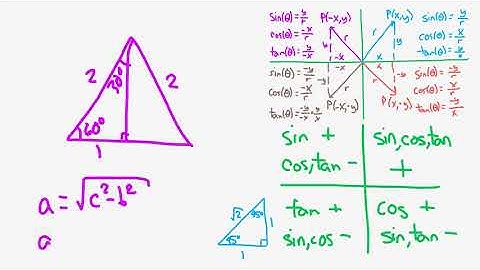 2
30°
2
60°
1
a = √c²-b²
a
√2
45°
1
45°
1
sin(θ)=y/r
cos(θ)=-x/r
tan(θ)=-y/x
P(-x,y)
r
y
-x
P(x,y)
r
y
x
sin(θ)=y/r
cos(θ)=x/r
tan(θ)=y/x
sin(θ)=-y/r
cos(θ)=-x/r
tan(θ)=-y/-x=y/x
-x
-y
r
P(-x,-y)
x
-y
r
P(x,-y)
sin(θ)=-y/r
cos(θ)=x/r
tan(θ)=-y/x
sin +
cos, tan -
sin, cos, tan
+
tan +
sin, cos -
cos +
sin, tan -